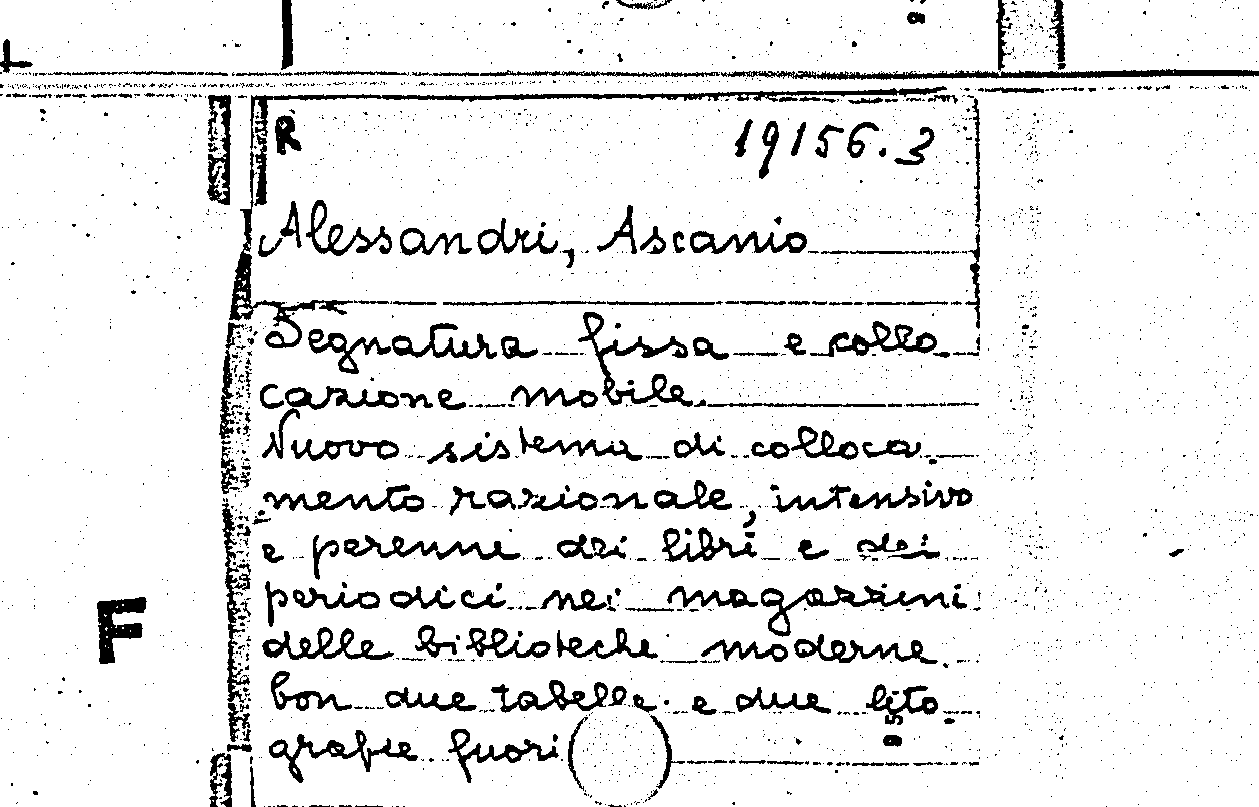 R
19156.3
Alessandri, Ascanio
Segnatura fissa e collo-
cazione mobile.
Nuovo sistema di colloca-
mento razionale, intensivo
e perenne dei libri e dei
periodici nei magazzini
delle biblioteche moderne.
Con due tabelle e due lito-
grafie fuori
F